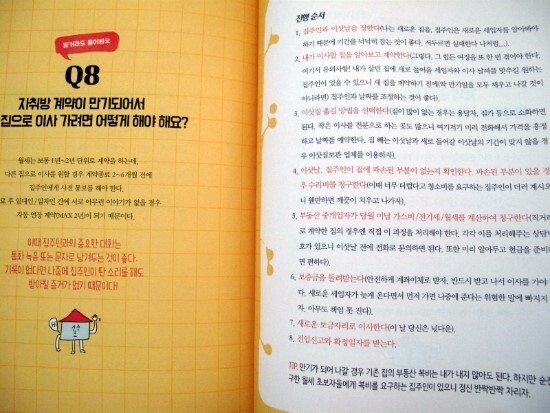 벌거라도 물어봐요
Q8
자취방 계약이 만기되어서
집으로 이사 가려면 어떻게 해야 해요?
월세는 보통 1년~2년 단위로 계약을 하는데,
다른 집으로 이사를 원할 경우 계약종료 2~6개월 전에
집주인에게 사전 통보를 해야 한다.
료 후 임대인/임차인 간에 서로 아무런 이야기가 없을 경우
자동 연장 계약(MAX 2년)이 되기 때문이다.
이때 집주인과의 중요한 대화는
통화 녹음 또는 문자로 남겨두는 것이 좋다.
기록이 없다면 나중에 집주인이 딴 소리를 해도
받아칠 증거가 없기 때문이다!
진행 순서
1. 집주인과 이삿날을 정한다(나는 새로운 집을, 집주인은 새로운 세입자를 알아봐야
하기 때문에 기간을 넉넉히 잡는 것이 좋다. 서두르면 실패한다 나처럼,,,).
2. 내가 이사할 집을 알아보고 계약한다(그렇다. 그 힘든 여정을 또 한 번 겪어야 한다.
여기서 유의사항! 내가 살던 집에 새로 들어올 세입자와 이사 날짜를 맞추길 원하는
집주인이 있을 수 있으니 새 집을 계약하기 전에(딱 만기일을 모두 채우고 나갈 것이
아니라면) 집주인과 날짜를 조정하는 것이 좋다).
3. 이삿짐 옮길 방법을 선택한다(짐이 많이 없는 경우는 용달차, 짐가방 등으로 소화하면
된다. 작은 이사를 전문으로 하는 곳도 많으니 여기저기 미리 전화해서 가격을 흥정하
고 날짜를 예약한다. 집 빼는 날과 새로 들어갈 이삿날의 기간이 맞지 않을 경
우 이삿짐보관 업체를 이용하자).
4. 이삿날, 집주인이 집에 파손된 부분이 없는지 확인한다. 파손된 부분이 있을 경
우 수리비를 청구한다(이때 너무 더럽다고 청소비를 요구하는 집주인이 더러 계시
니 웬만하면 깨끗이 치우고 나가자).
5. 부동산 중개업자가 당월 미납 가스비/전기세/월세를 계산하여 청구한다(직거래
로 계약한 집의 경우엔 직접 이 과정을 처리해야 한다. 각각 이를 처리해주는 상담번
호가 있으니 이삿날 전에 전화로 문의하면 된다. 또한 미리 알아두고 현금을 준비
면 편하다).
6. 보증금을 돌려받는다(안전하게 계좌이체로 받자. 반드시 받고 나서 이사를 가야
다. 새로운 세입자가 늦게 온다면서 먼저 가면 나중에 준다는 위험한 말에 빠지지
자. 아무도 책임 못 진다).
7. 새로운 보금자리로 이사한다(이 날 당신은 넋다운).
8. 전입신고와 확정일자를 받는다.
TIP. 만기가 되어 나갈 경우 기존 집의 부동산 복비는 내가 내지 않아도 된다. 하지만 순진
구한 월세 초보자들에게 복비를 요구하는 집주인이 있으니 정신 반짝반짝 차리자.